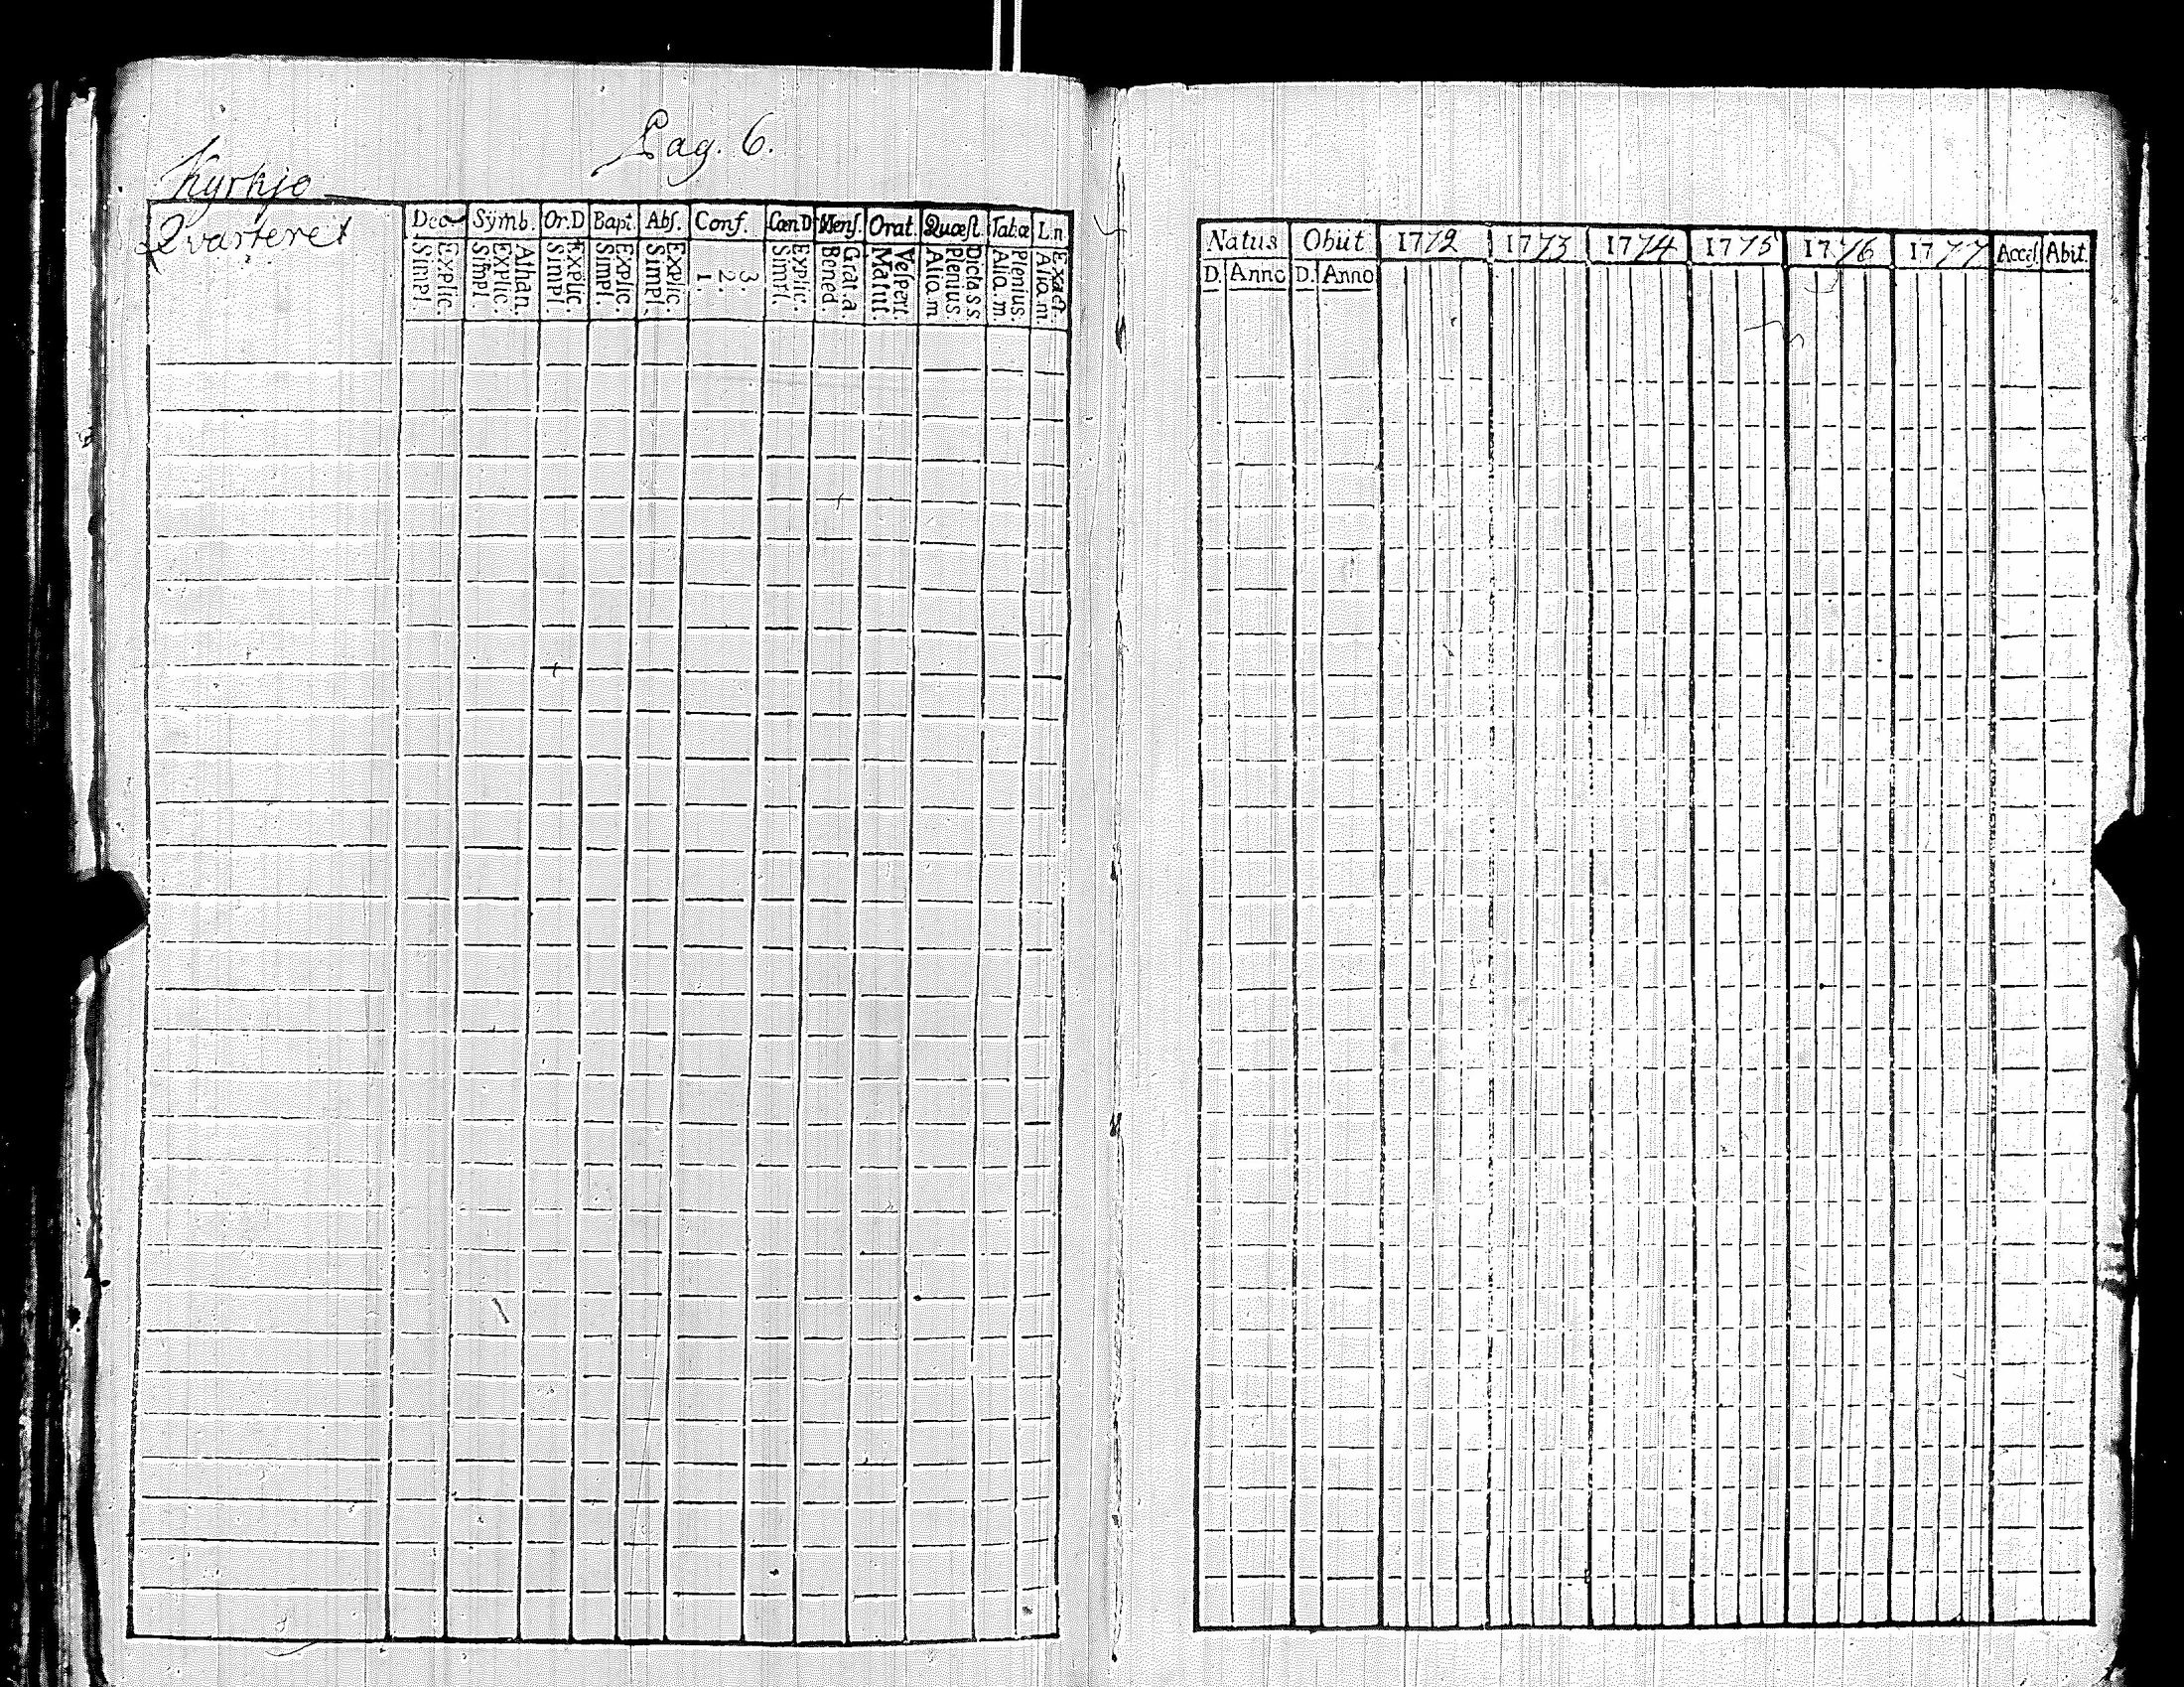 Pag. 6.
Kyrkjo
Qvarteret
Deca Symb. Or.D Bapt. Abs. Conf. Cœn D Mens. Orat. Quæst. Tabæ L.n.
Simpl. Explic. Simpl. Explic. Athan. Simpl. Explic. Simpl. Explic. Simpl. Explic. 1. 2. 3. Simpl. Explic. Bened. Grat.a. Matut. Vespert. Alia.m Plenius Dicta s.s. Alia.m Plenius. Alia.m. Exact.
Natus Obiit 1772 1773 1774 1775 1776 1777 Acces. Abit.
D. Anno D. Anno